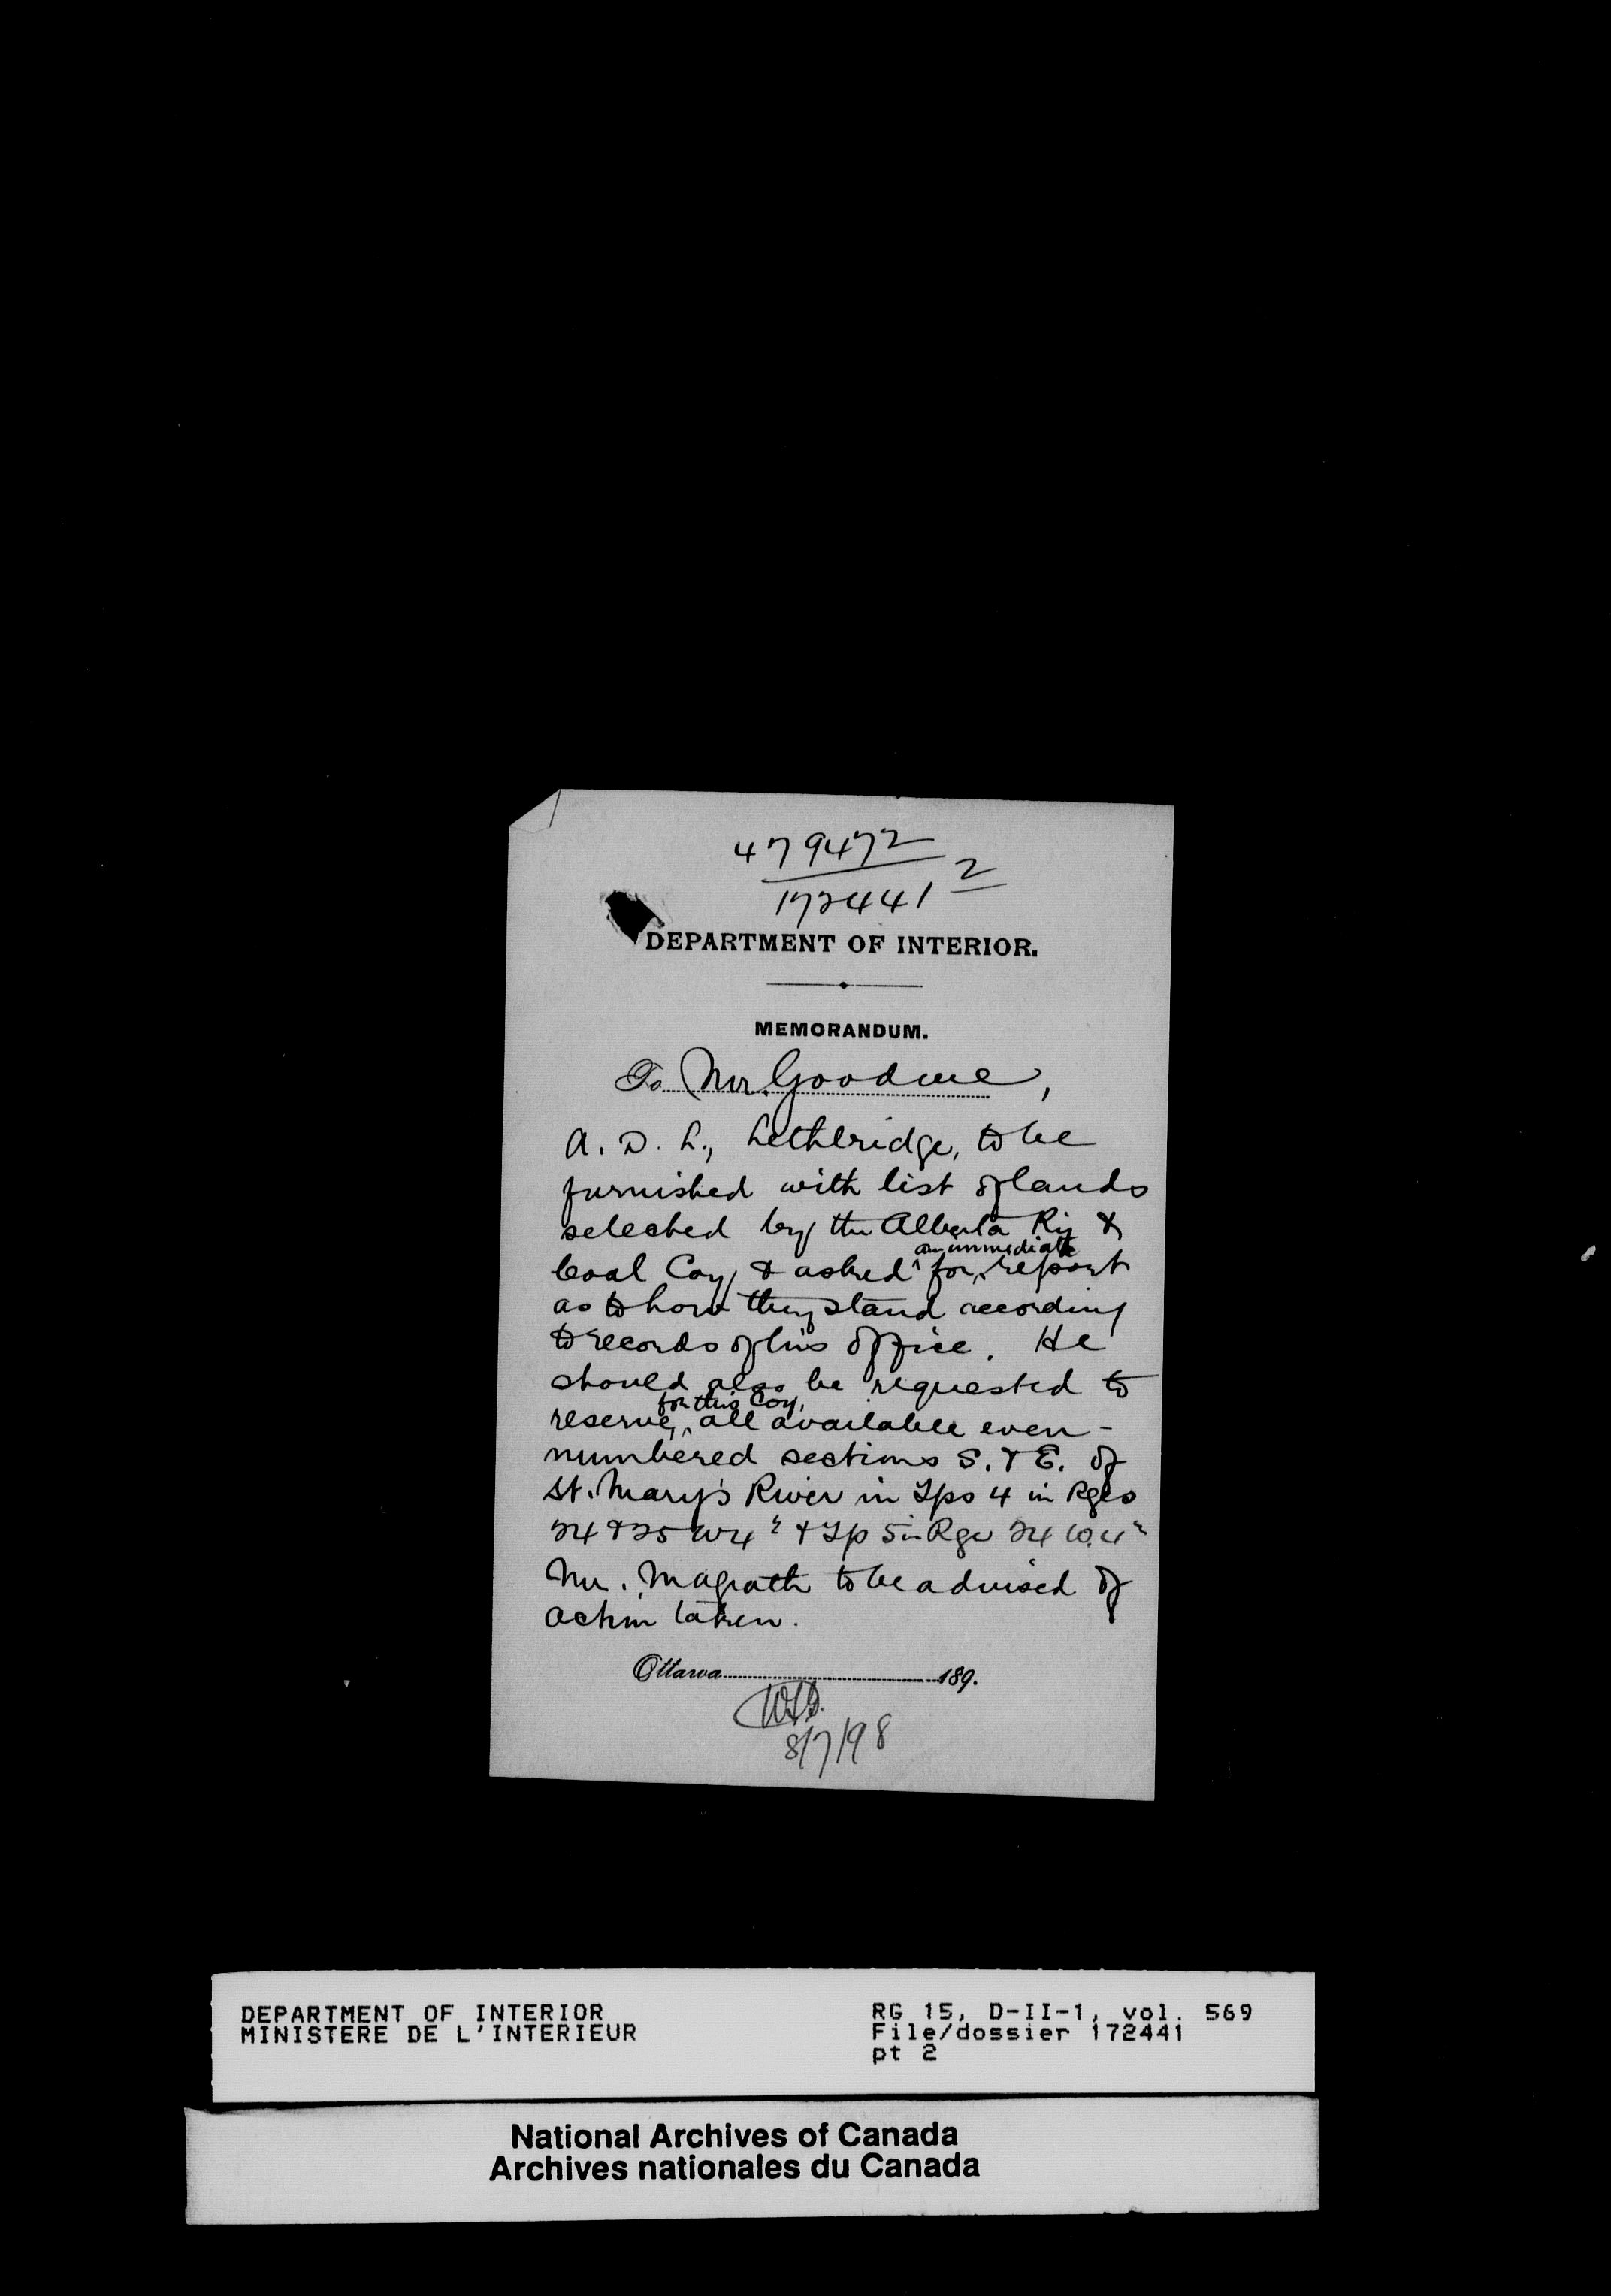 479472
172441 2
DEPARTMENT OF INTERIOR.
MEMORANDUM.
To Mr. Goodeve,
A. D. L., Lethbridge, to be
furnished with list of lands
selected by the Alberta Ry &
an immediate
Coal Coy, & asked for report
as to how they stand according
to records of his office. He
should also be requested to
for this Coy,
reserve, all available even-
numbered sections S. & E. of
St. Mary's River in Tps 4 in Rges
24 & 25 W 4 & Tp 5 in Rge 24 W. 4
Mr. Magrath to be advised of
action taken.
Ottawa 189.
8/7/98
DEPARTMENT OF INTERIOR
MINISTERE DE L'INTERIEUR
RG 15, D-II-1, vol. 569
File/dossier 172441
pt 2
National Archives of Canada
Archives nationales du Canada